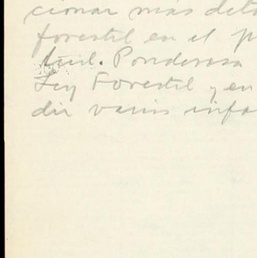 cionar más deta
forestal en el p
tud. Ponderosa
Ley Forestal y en
dir varios info